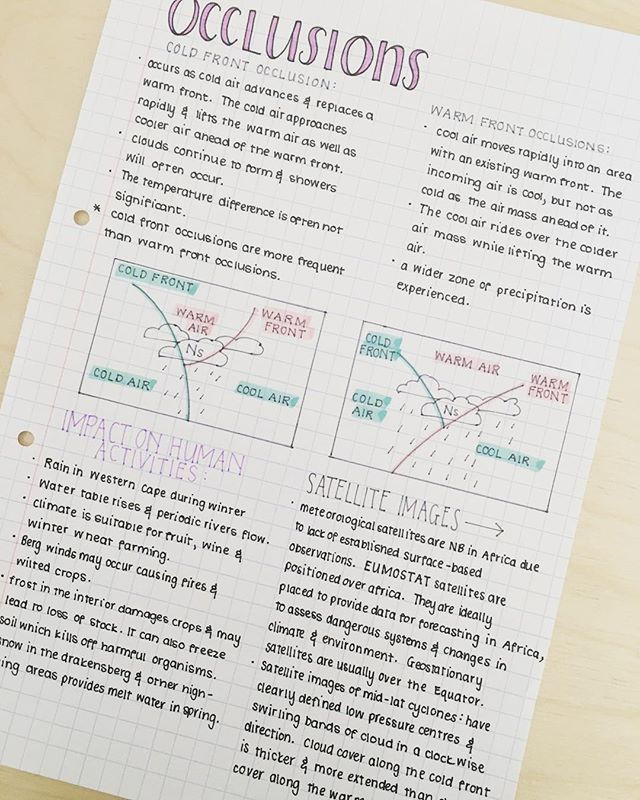 OCCLUSIONS
COLD FRONT OCCLUSION:
• occurs as cold air advances & replaces a
warm front. The cold air approaches
rapidly & lifts the warm air as well as
cooler air ahead of the warm front.
• clouds continue to form & showers
will often occur.
• The temperature difference is often not
significant.
* cold front occlusions are more frequent
than warm front occlusions.
WARM FRONT OCCLUSIONS:
• cool air moves rapidly into an area
with an existing warm front. The
incoming air is cool, but not as
cold as the air mass ahead of it.
• The cool air rides over the colder
air mass while lifting the warm
air.
• a wider zone of precipitation is
experienced.
COLD FRONT
WARM
AIR
WARM
FRONT
Ns
COLD AIR
COOL AIR
COLD
FRONT
WARM AIR
WARM
FRONT
COLD
AIR
Ns
COOL AIR
IMPACT ON HUMAN
ACTIVITIES:
• Rain in Western Cape during winter
• Water table rises & periodic rivers flow.
• climate is suitable for fruit, wine &
winter wheat farming.
• Berg winds may occur causing fires &
wilted crops.
• frost in the interior damages crops & may
lead to loss of stock. It can also freeze
soil which kills off harmful organisms.
snow in the drakensberg & other high-
ing areas provides melt water in spring.
SATELLITE IMAGES →
• meteorological satellites are NB in Africa due
to lack of established surface-based
observations. EUMOSTAT satellites are
positioned over africa. They are ideally
placed to provide data for forecasting in Africa,
to assess dangerous systems & changes in
climate & environment. Geostationary
satellites are usually over the Equator.
• Satellite images of mid-lat cyclones: have
clearly defined low pressure centres &
swirling bands of cloud in a clockwise
direction. Cloud cover along the cold front
is thicker & more extended than
cover along the warm